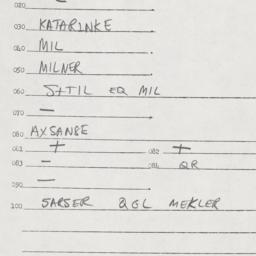 020
030 KATARINKE
040 MIL
050 MILNER
060 S+TIL EQ MIL
070 —
080 AXSANSE
081 + 082 +
083 – 084 QR
090 —
100 SARSER QGL MEKLER